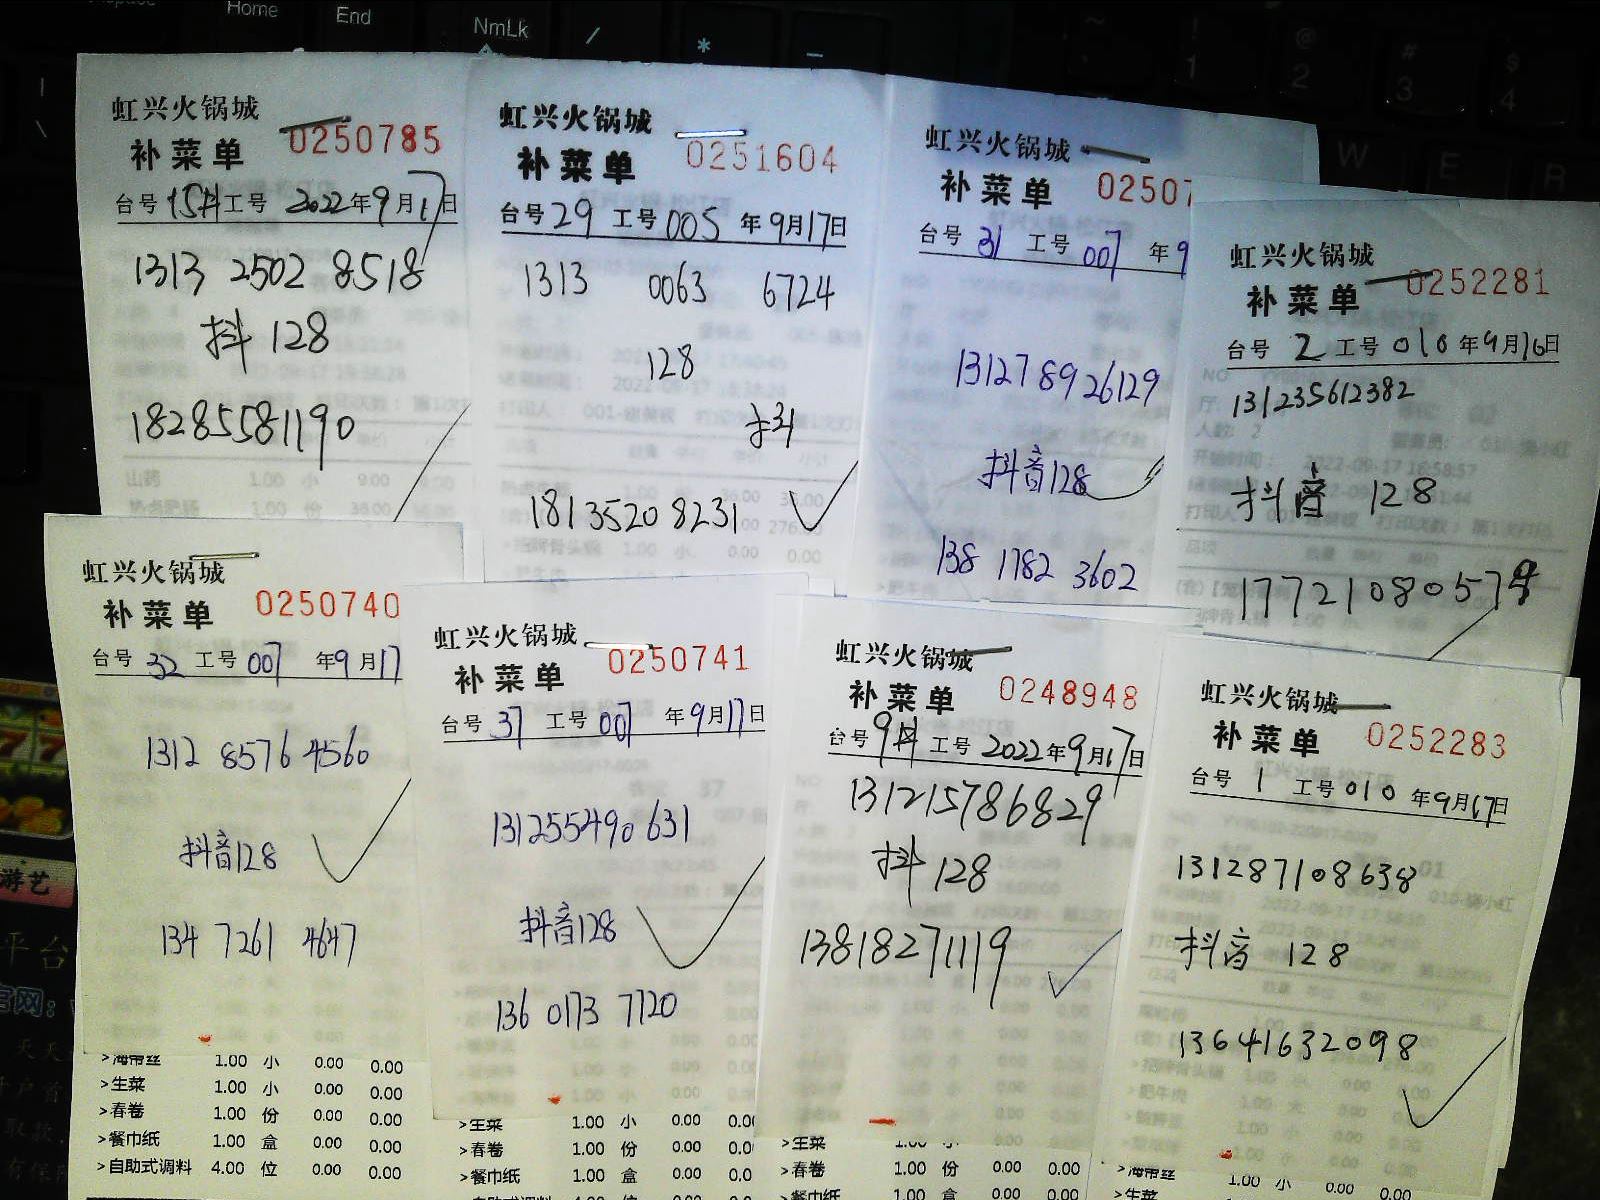 Home
End
NmLk
虹兴火锅城
补菜单 0250785
台号 15# 工号 2022年9月17日
1313 2502 8518
抖 128
18285581190
山药 1.00 小 9.00
虹兴火锅城
补菜单 0251604
台号 29 工号 005 年9月17日
1313 0063 6724
128
抖
18135208231
虹兴火锅城
补菜单 02507
台号 31 工号 007 年9
1312789 26129
抖音128
138 1782 3602
虹兴火锅城
补菜单 0252281
台号 2 工号 010 年9月16日
131235612382
抖音 128
1772108057
虹兴火锅城
补菜单 0250740
台号 32 工号 007 年9月17
1312 8576 4560
抖音128
134 7261 4647
>海带丝 1.00 小 0.00 0.00
>生菜 1.00 小 0.00 0.00
>春卷 1.00 份 0.00 0.00
>餐巾纸 1.00 盒 0.00 0.00
>自助式调料 4.00 位 0.00 0.00
虹兴火锅城
补菜单 0250741
台号 37 工号 007 年9月17日
131255490631
抖音128
136 0173 7720
>生菜 1.00 小 0.00 0.00
>春卷 1.00 份 0.00 0.00
>餐巾纸 1.00 盒 0.00 0.00
虹兴火锅城
补菜单 0248948
台号 9# 工号 2022年9月17日
131215786829
抖 128
13818271119
>生菜 1.00 小 0.00 0.00
>春卷 1.00 份 0.00 0.00
>餐巾纸 1.00 盒 0.00 0.00
虹兴火锅城
补菜单 0252283
台号 1 工号 010 年9月17日
131287108638
抖音 128
13641632098
>海带丝 1.00 小 0.00 0.00
>生菜
游艺
平台
官网: